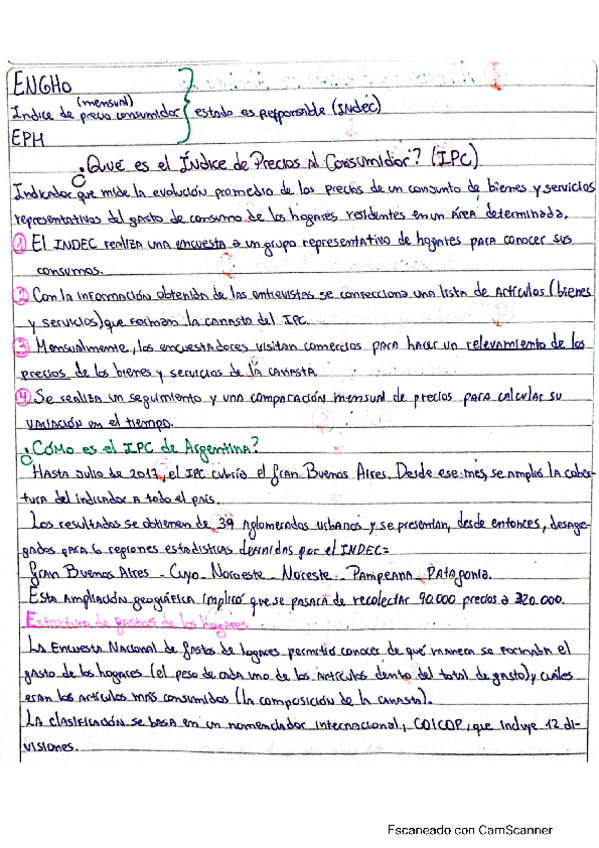 ENGHO
(mensual)
Índice de precio consumidor } estado es responsable (Indec)
EPH
¿Qué es el Índice de Precios Al Consumidor? (IPC)
Indicador que mide la evolución promedio de los precios de un conjunto de bienes y servicios
representativos del gasto de consumo de los hogares residentes en un área determinada.
① El INDEC realiza una encuesta a un grupo representativo de hogares para conocer sus
consumos.
② Con la información obtenida de las entrevistas se confecciona una lista de Artículos (bienes
y servicios) que forman la canasta del IPC.
③ Mensualmente, los encuestadores visitan comercios para hacer un relevamiento de los
precios de los bienes y servicios de la canasta
④ Se realiza un seguimiento y una comparación mensual de precios para calcular su
variación en el tiempo.
¿Cómo es el IPC de Argentina?
Hasta Julio de 2017, el IPC cubrió el Gran Buenos Aires. Desde ese mes, se amplió la cober-
tura del indicador a todo el país.
Los resultados se obtienen de 39 aglomerados urbanos y se presentan, desde entonces, desagre-
gados para 6 regiones estadísticas definidas por el INDEC=
Gran Buenos Aires - Cuyo - Noroeste - Noreste - Pampeana - Patagonia.
Esta ampliación geográfica implicó que se pasará de recolectar 90.000 precios a 320.000.
Estructura de gastos de los hogares
La Encuesta Nacional de Gastos de hogares permitió conocer de qué manera se formaba el
gasto de los hogares (el peso de cada uno de los artículos dentro del total de gasto) y cuáles
eran los artículos más consumidos (la composición de la canasta).
La clasificación se basa en un nomenclador internacional, COICOP, que incluye 12 di-
visiones.
Escaneado con CamScanner